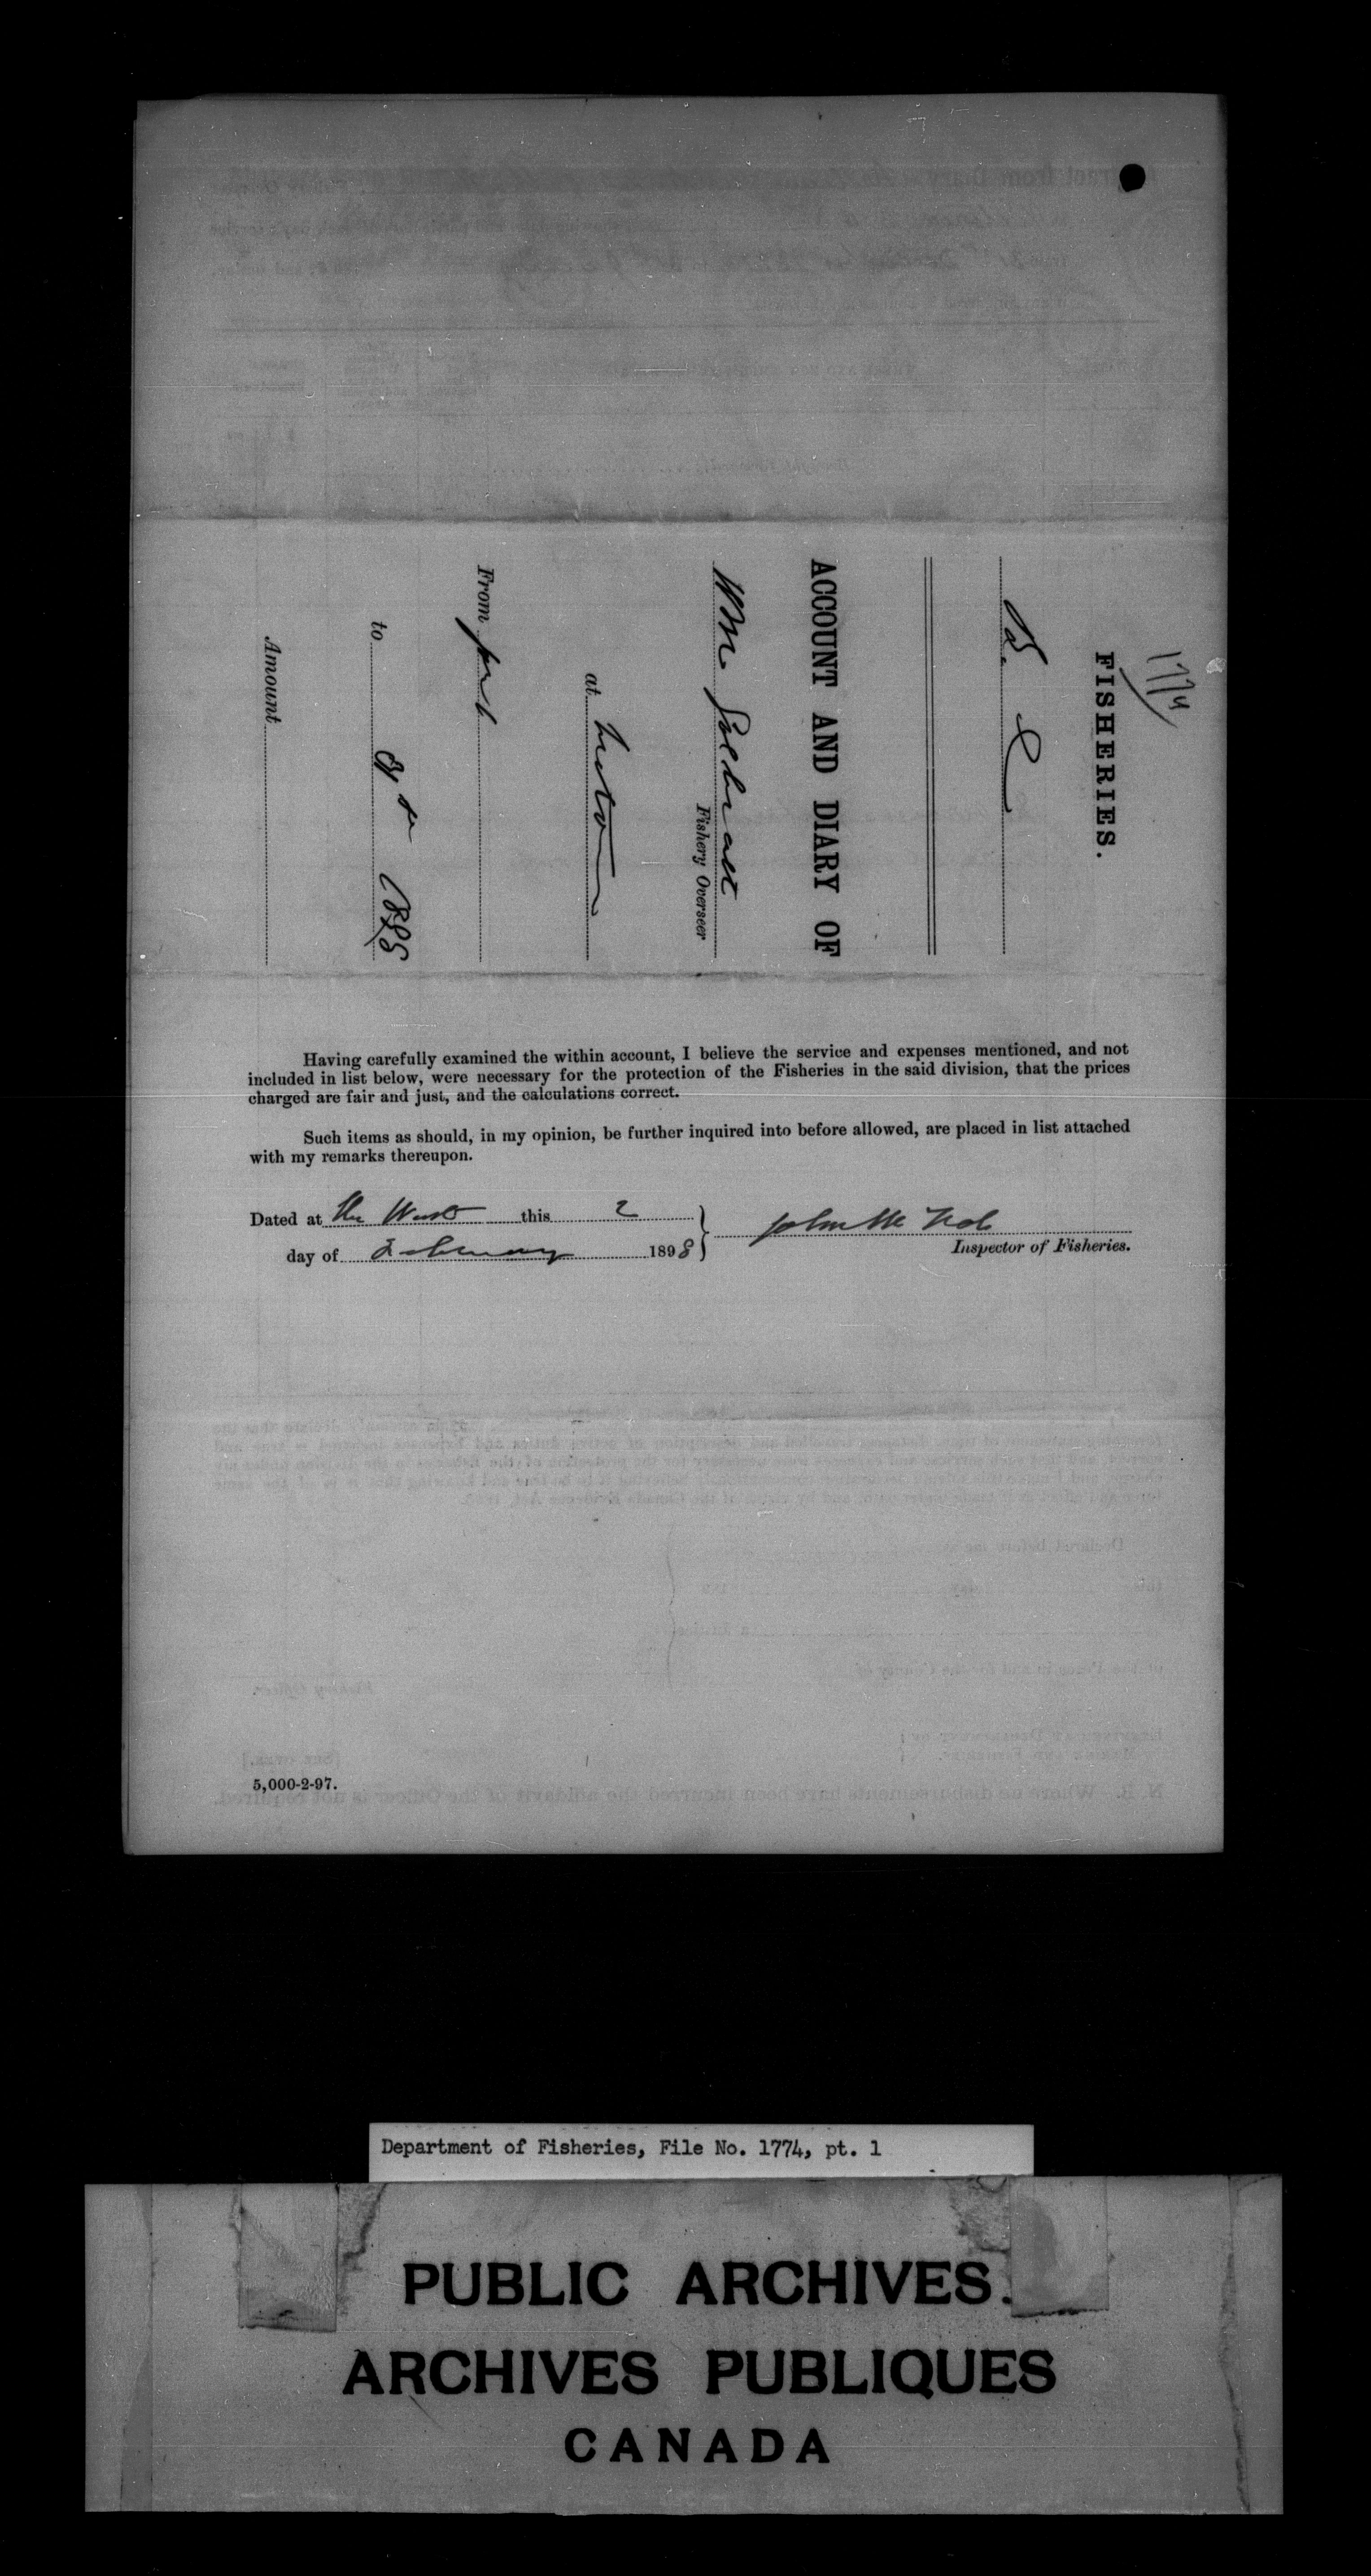 1774
FISHERIES.
B. C.
ACCOUNT AND DIARY OF
Wm Galbraith
Fishery Overseer
at
From
to 1898
Amount
Having carefully examined the within account, I believe the service and expenses mentioned, and not
included in list below, were necessary for the protection of the Fisheries in the said division, that the prices
charged are fair and just, and the calculations correct.
Such items as should, in my opinion, be further inquired into before allowed, are placed in list attached
with my remarks thereupon.
Dated at this 2
day of February 1898
John McNab
Inspector of Fisheries.
5,000-2-97.
Department of Fisheries, File No. 1774, pt. 1
PUBLIC ARCHIVES
ARCHIVES PUBLIQUES
CANADA